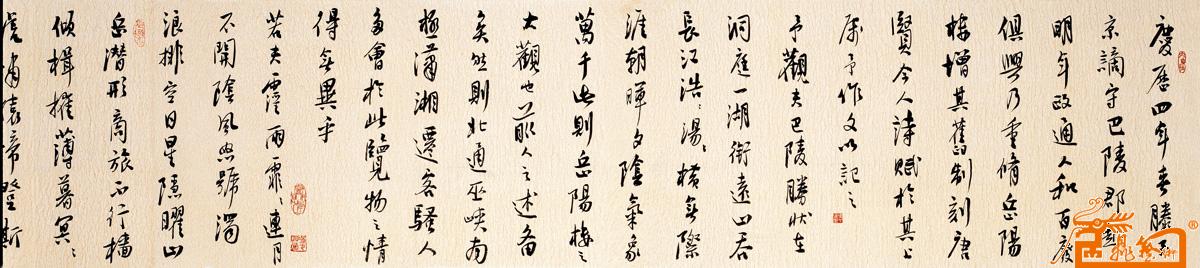 慶曆四年春滕子
京謫守巴陵郡越
明年政通人和百廢
俱興乃重脩岳陽
樓增其舊制刻唐
賢今人詩賦於其上
屬予作文以記之
予觀夫巴陵勝狀在
洞庭一湖銜遠山吞
長江浩〻湯〻橫無際
涯朝暉夕陰氣象
萬千此則岳陽樓之
大觀也前人之述備
矣然則北通巫峽南
極瀟湘遷客騷人
多會於此覽物之情
得無異乎
若夫霪雨霏〻連月
不開陰風怒號濁
浪排空日星隱曜山
岳潛形商旅不行檣
傾楫摧薄暮冥〻
虎嘯猿啼登斯